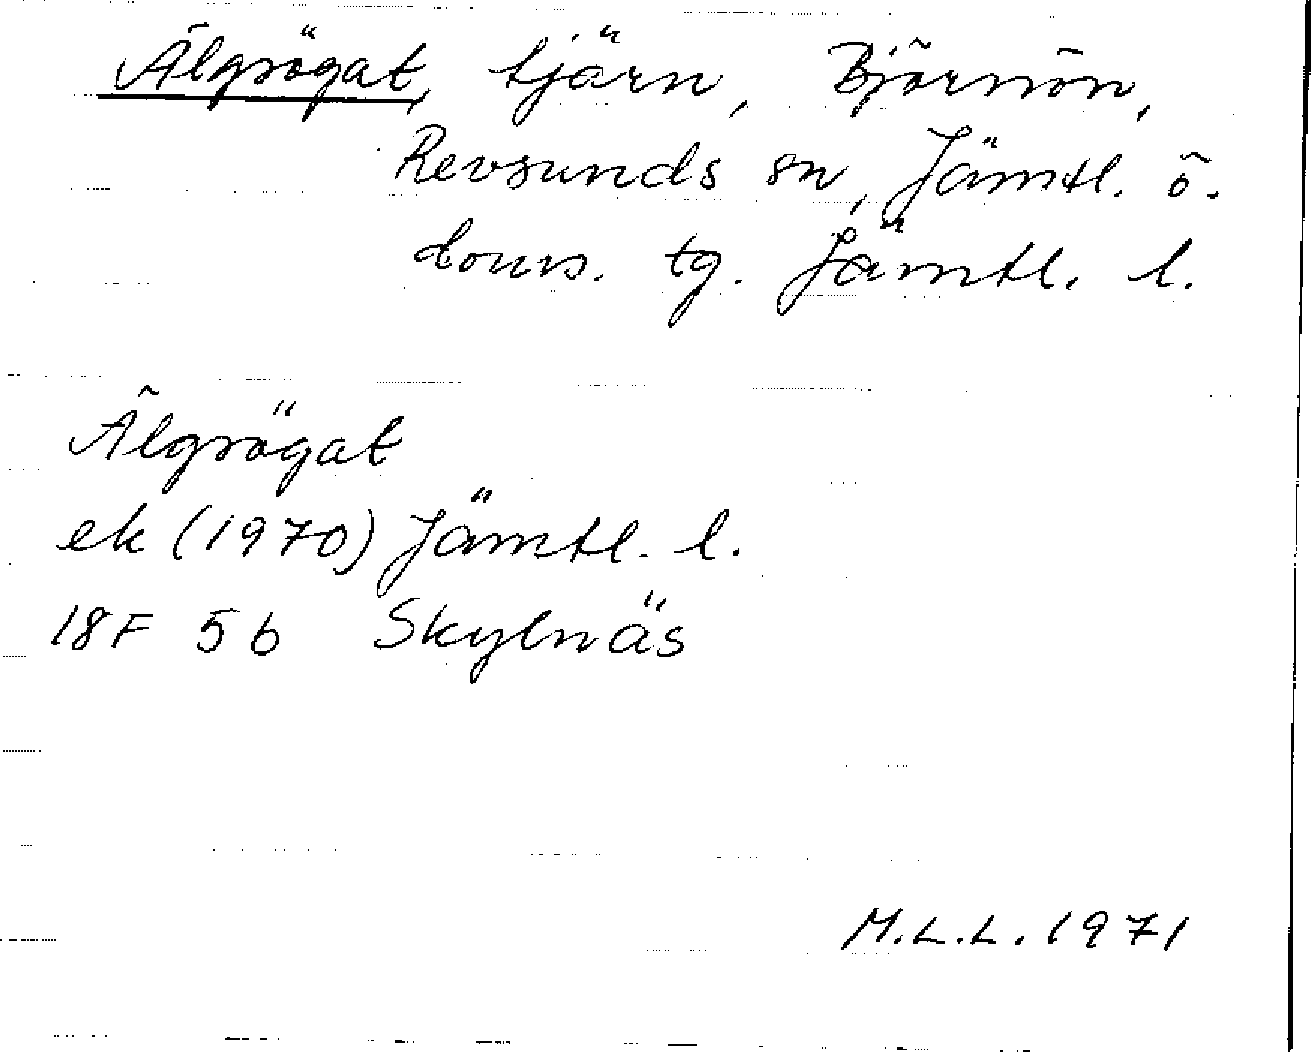 Älgrögat, tjärn, Björnön,
Revsunds sn, Jämtl. ö.
doms. tg. Jämtl. l.
Älgrögat
ek (1970) Jämtl. l.
18F 5b Skylnäs
M.L.L. 1971